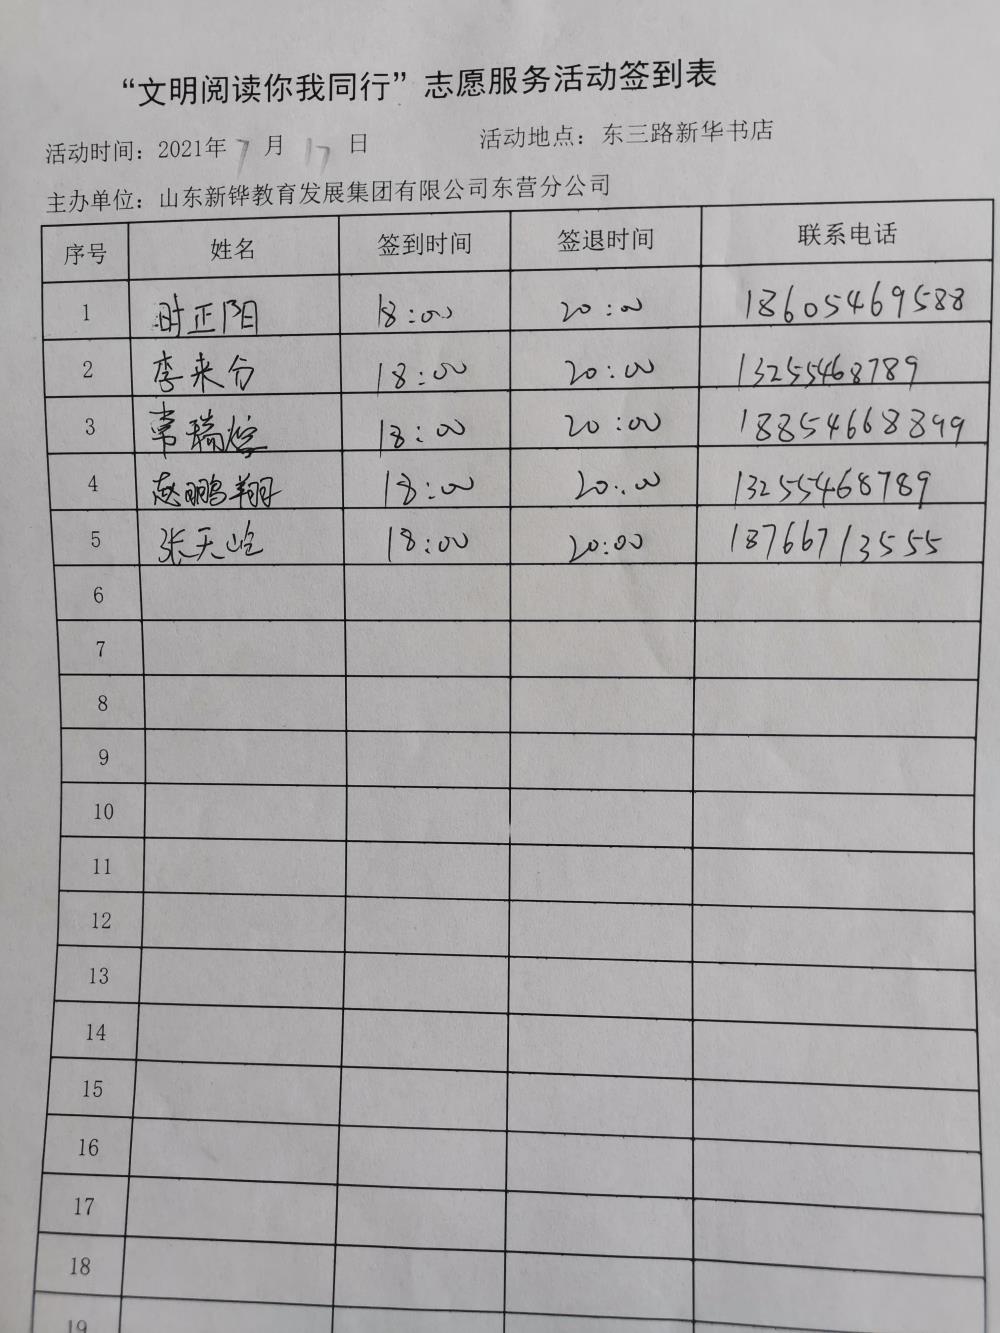 “文明阅读你我同行”志愿服务活动签到表
活动时间：2021年 7 月 17 日 活动地点：东三路新华书店
主办单位：山东新铧教育发展集团有限公司东营分公司
序号 姓名 签到时间 签退时间 联系电话
1 时正阳 18:00 20:00 18605469588
2 李来分 18:00 20:00 13255468789
3 常瑞 18:00 20:00 18854668899
4 赵鹏翔 18:00 20:00 13255468789
5 张天屹 18:00 20:00 18766713555
6
7
8
9
10
11
12
13
14
15
16
17
18
19